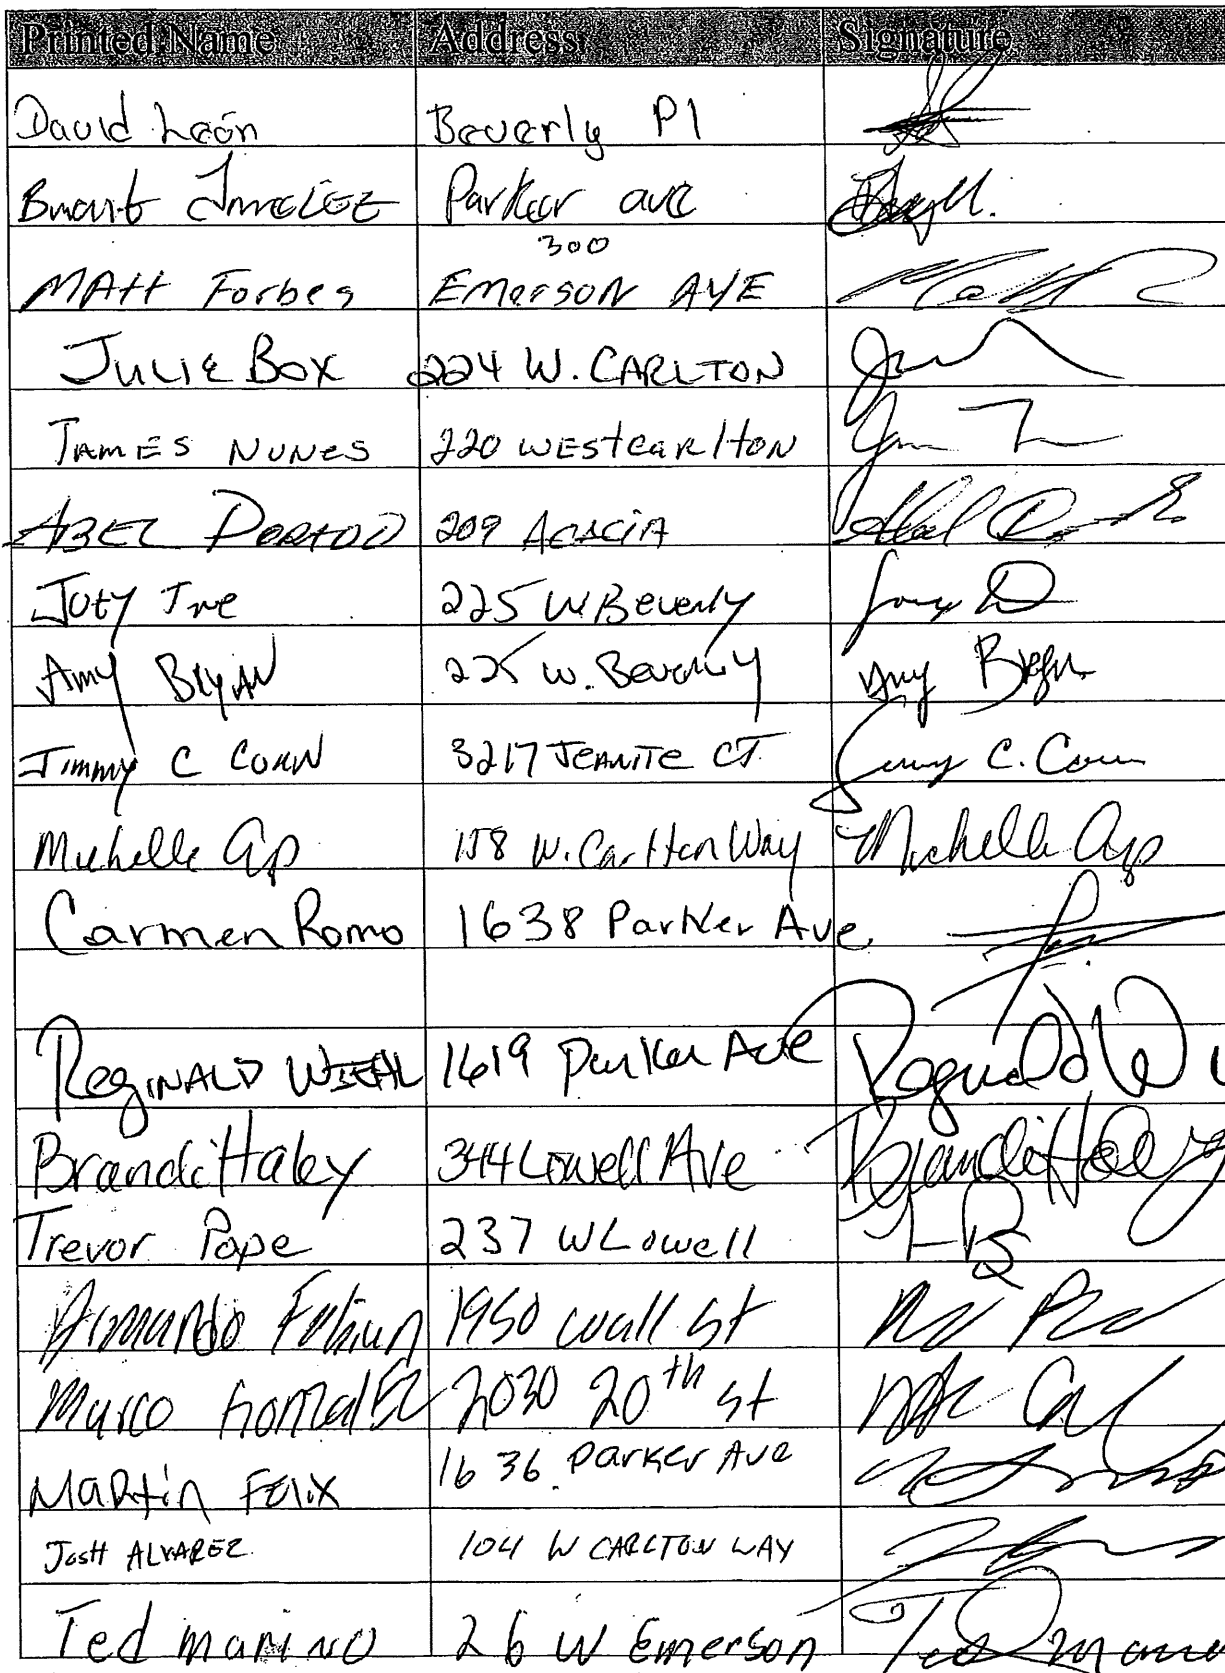 Printed Name Address Signature
David León Beverly Pl
Parker ave
300
MAtt Forbes EMERSON AVE Matt
JULIE BOX 224 W. CARLTON
JAMES NUNES 220 WEST CARLTON
ABEL 209 ACACIA Abel
225 W Beverly
Amy BryAN 225 W. Beverly Amy Bryan
Jimmy C CONN 3217 JEANITE CT. Jimmy C. Conn
Michelle 158 W. Carlton Way Michelle
Carmen Romo 1638 Parker Ave
REGINALD 1619 Parker Ave Reginald W
Brandi Haley 344 Lowell Ave Brandi Haley
Trevor Pope 237 W Lowell
Armando Fabian 1950 wall st
Marco Gonzalez 2030 20th st
Martin Felix 1636 Parker Ave
JosH ALVAREZ 104 W CARLTON WAY
Ted marino 26 W Emerson Ted